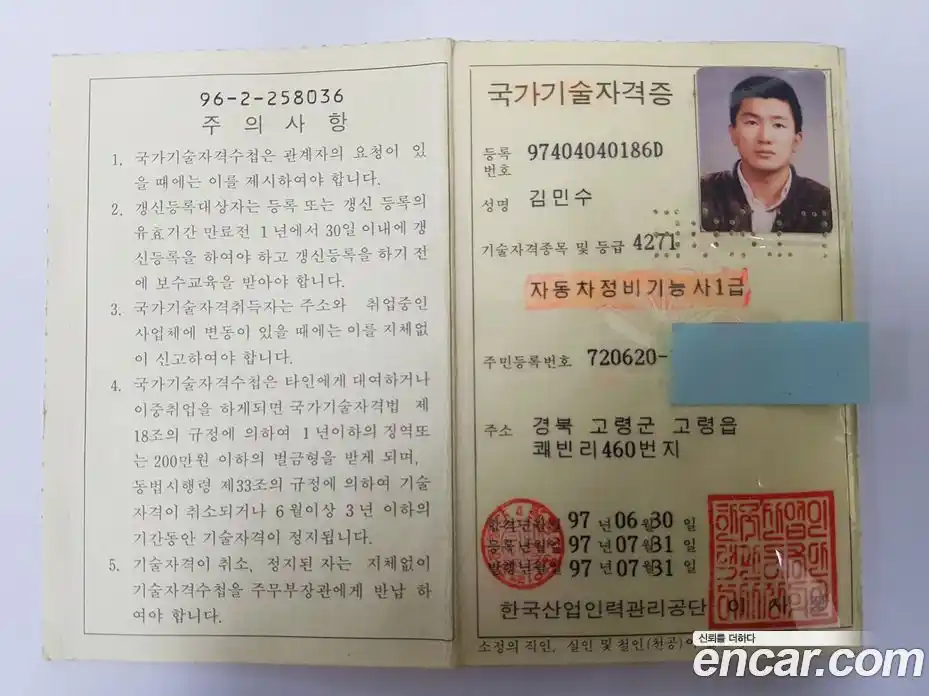 96-2-258036
주 의 사 항
1. 국가기술자격수첩은 관계자의 요청이 있
을 때에는 이를 제시하여야 합니다.
2. 갱신등록대상자는 등록 또는 갱신 등록의
유효기간 만료전 1년에서 30일 이내에 갱
신등록을 하여야 하고 갱신등록을 하기 전
에 보수교육을 받아야 합니다.
3. 국가기술자격취득자는 주소와 취업중인
사업체에 변동이 있을 때에는 이를 지체없
이 신고하여야 합니다.
4. 국가기술자격수첩은 타인에게 대여하거나
이중취업을 하게되면 국가기술자격법 제
18조의 규정에 의하여 1년이하의 징역또
는 200만원 이하의 벌금형을 받게 되며,
동법시행령 제33조의 규정에 의하여 기술
자격이 취소되거나 6월이상 3년 이하의
기간동안 기술자격이 정지됩니다.
5. 기술자격이 취소, 정지된 자는 지체없이
기술자격수첩을 주무부장관에게 반납 하
여야 합니다.
국가기술자격증
등록번호 97404040186D
성명 김민수
기술자격종목 및 등급 4271
자동차정비기능사1급
주민등록번호 720620-
주소 경북 고령군 고령읍
쾌빈리460번지
합격년월일 97 년 06 월 30 일
등록년월일 97 년 07 월 31 일
발행년월일 97 년 07 월 31 일
한국산업인력관리공단 이사장
소정의 직인, 실인 및 철인(천공)이
신뢰를 더하다
encar.com